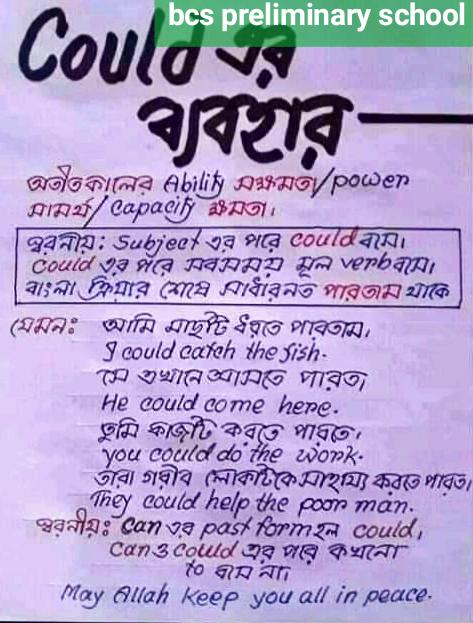 bcs preliminary school
Could এর
ব্যবহার
অতীতকালের Ability সক্ষমতা/power
সামর্থ/capacity ক্ষমতা।
স্বরনীয়: Subject এর পরে could বসে।
could এর পরে সবসময় মূল verb বসে।
বাংলা ক্রিয়ার শেষে সাধারনত পারতাম থাকে
যেমনঃ আমি মাছটি ধরতে পারতাম।
I could catch the fish.
সে এখানে আসতে পারত।
He could come here.
তুমি কাজটি করতে পারতে।
you could do the work.
তারা গরীব লোকটিকে সাহায্য করতে পারত।
They could help the poor man.
স্বরনীয়ঃ Can এর past form হল could,
Can ও could এর পরে কখনো
to বসে না।
May Allah keep you all in peace.